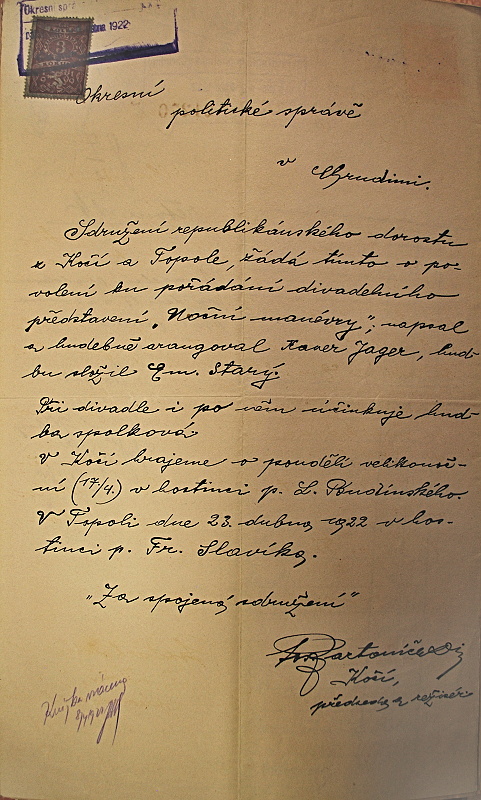 Okresní
1922
3
Okresní
politické správě
v Chrudimi.
Sdružení republikánského dorostu
z Kočí a Topole, žádá tímto o po-
volení ku pořádání divadelního
představení „Noční manévry"; napsal
a hudebně arangoval Xaver Jager, hud-
bu složil Em. Starý.
Při divadle i po něm účinkuje hud-
ba spolková.
V Kočí hrajeme o pondělí velikonoč-
ní (17/4.) v hostinci p. L. Budínského
V Topoli dne 23. dubna 1922 v hos-
tinci p. Fr. Slavíka.
„Za spojená sdružení"
Kočí,
předseda a režisér